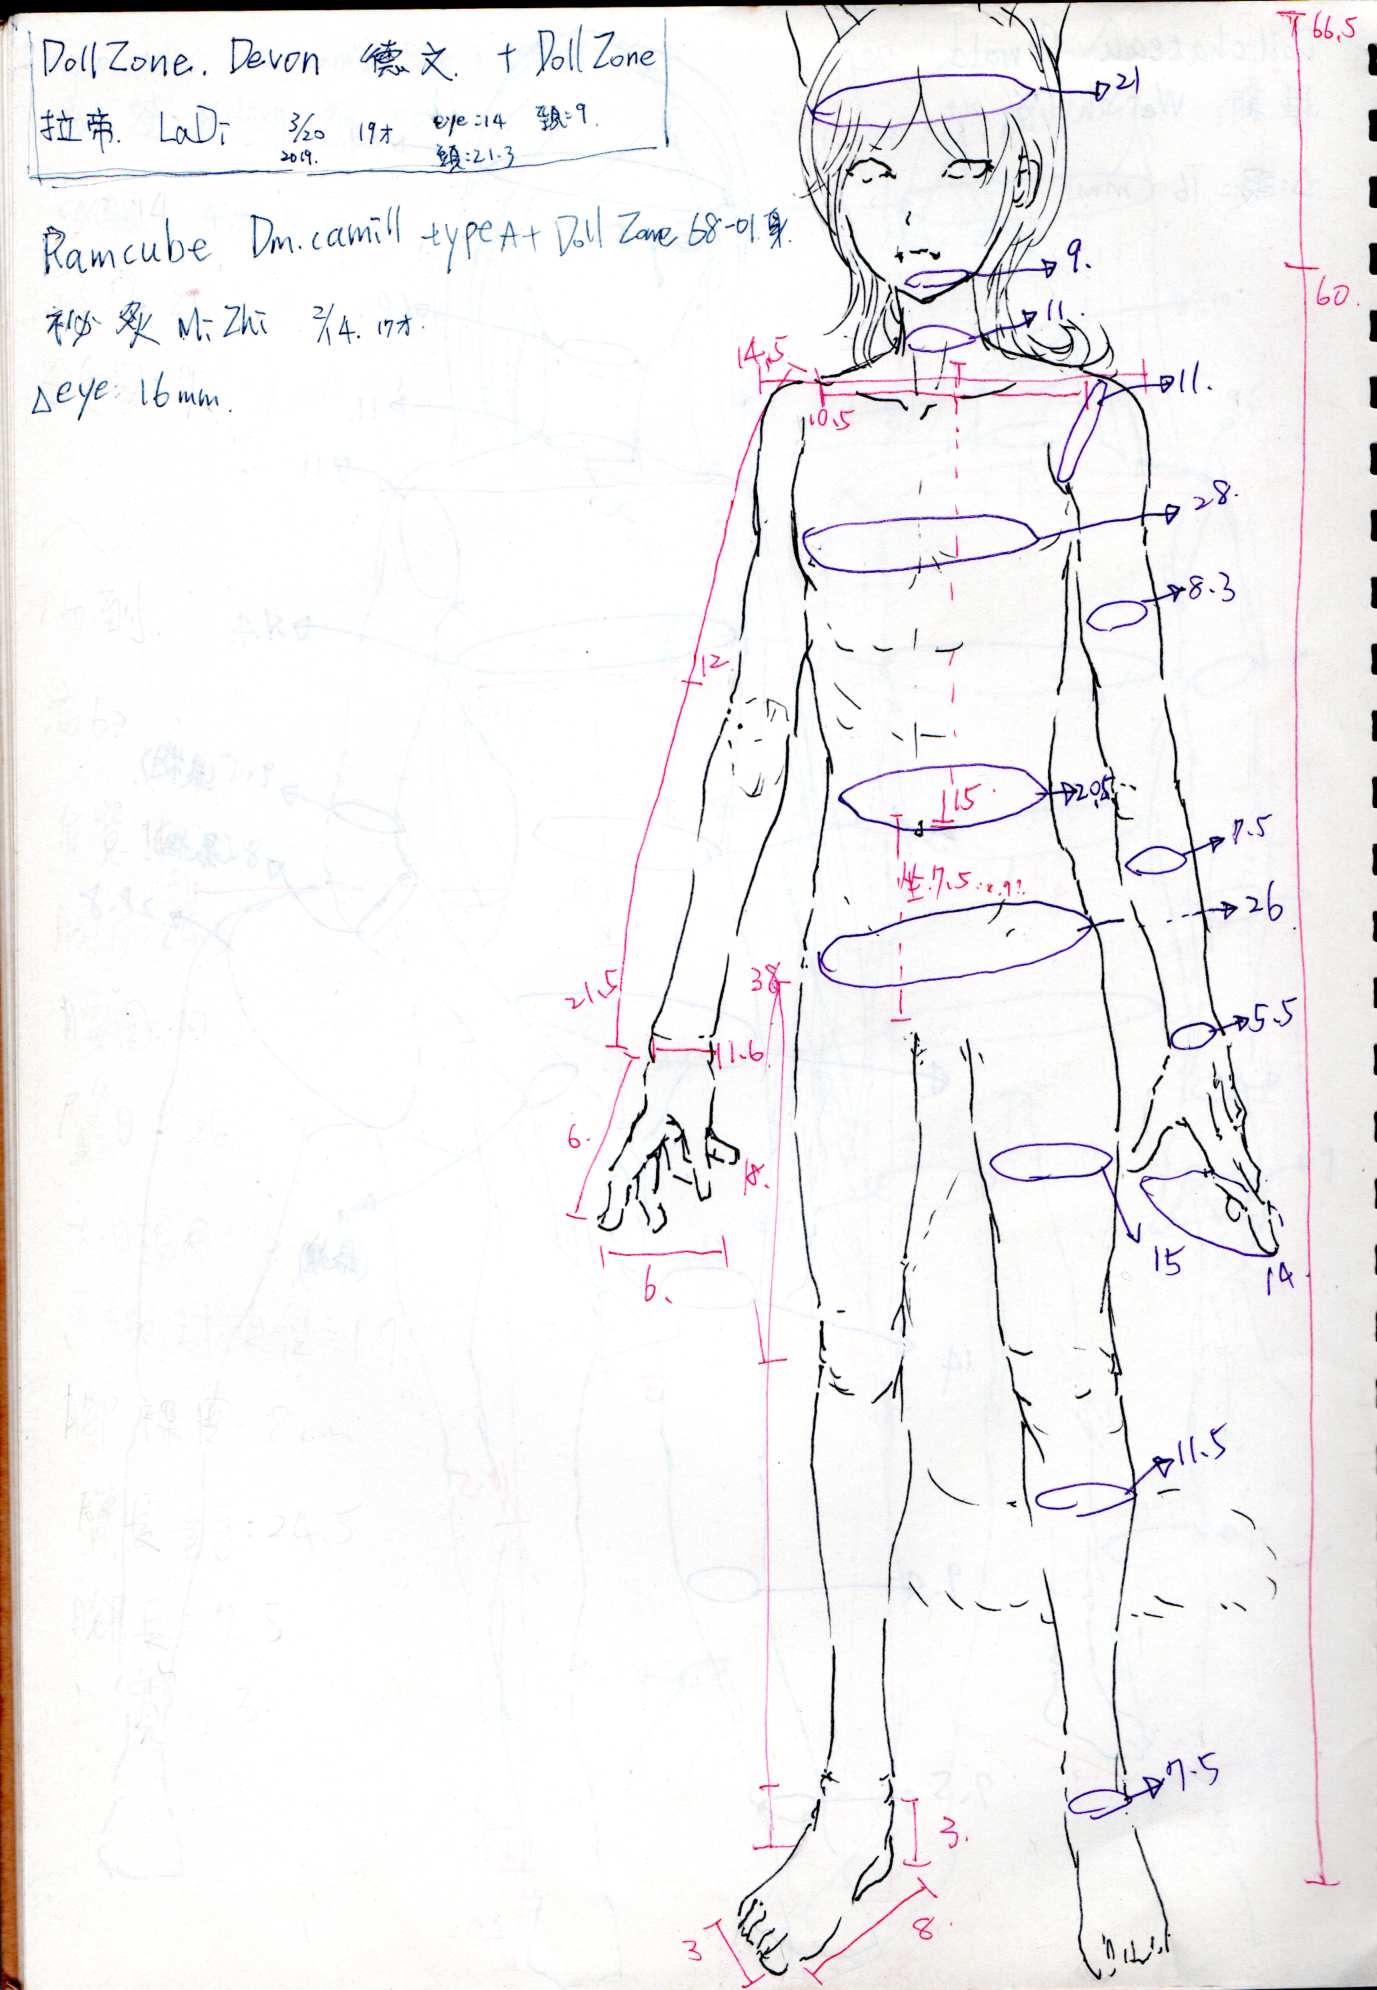 DollZone. Devon 德文. + DollZone
拉帝. LaDi 3/20 2019. 19才 eye:14 頸:9. 頭:21.3
Ramcube Dm.camill typeA+ Doll Zone 68-01身.
祕炙 MiZhi 2/14. 17才.
△eye: 16mm.
66.5
21
9.
60.
11.
14.5
11.
10.5
28.
8.3
12
15.
20.5
7.5
坐.7.5
26
38
21.5
5.5
11.6
6.
18.
15
14
6.
11.5
7.5
3.
8.
3